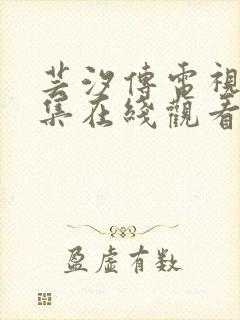 芸汐傳電視
集在綫觀看
盈虛有数